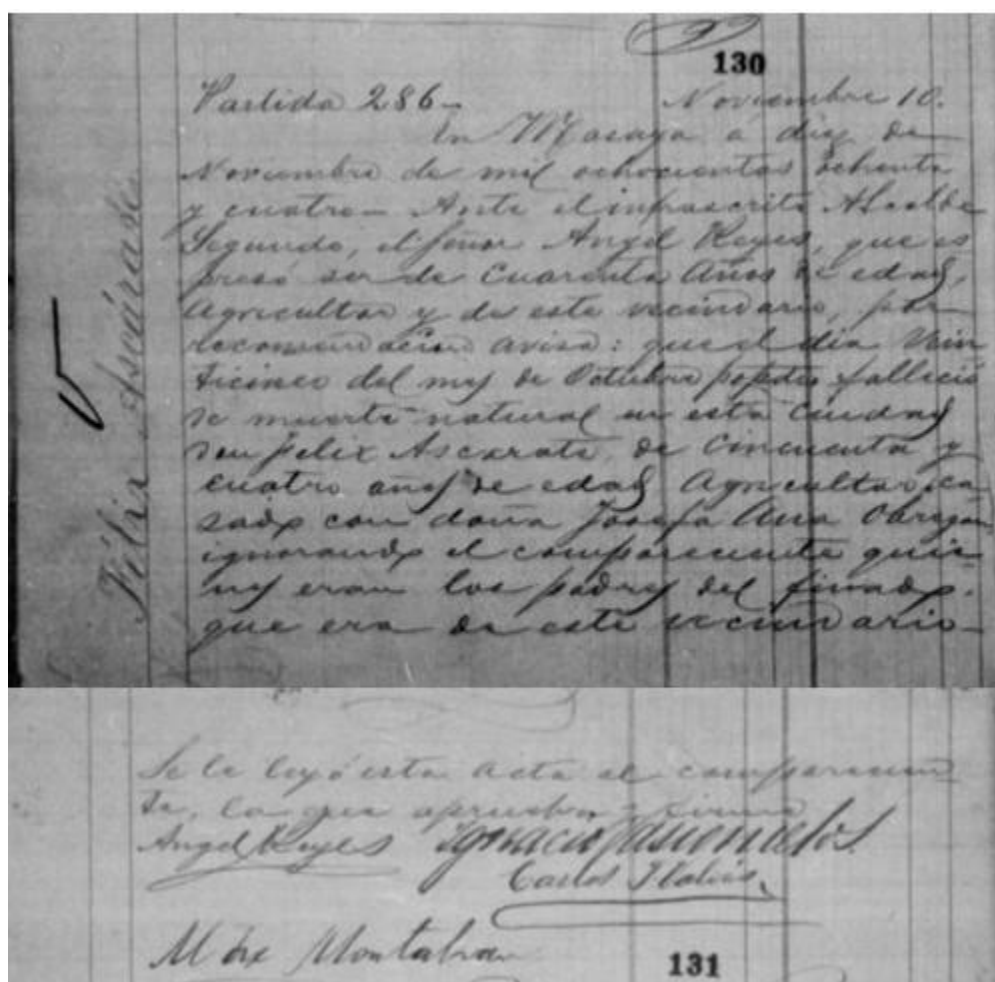 130
Partida 286— Noviembre 10.
En Masaya a diez de
Noviembre de mil ochocientos ochenta
y cuatro— Ante el infrascrito Alcalde
Segundo, el señor Angel Reyes, que es
presó ser de Cuarenta Años de edad,
Agricultor y de este vecindario, por
recomendacion avisa: que el dia Vein
ticinco del mes de Octubre ppdo fallecio
de muerte natural en esta Ciudad
don Felix Ascarate, de Cincuenta y
cuatro años de edad Agricultor, ca
sado con doña Josefa Ana Obregon
ignorando el compareciente quie
nes eran los padres del finado.
que era de este vecindario—
Félix Ascárate
Se le leyó esta acta al comparecien
te, la que aprueba firma
Angel Reyes Ignacio
Carlos
Max Montalvan
131